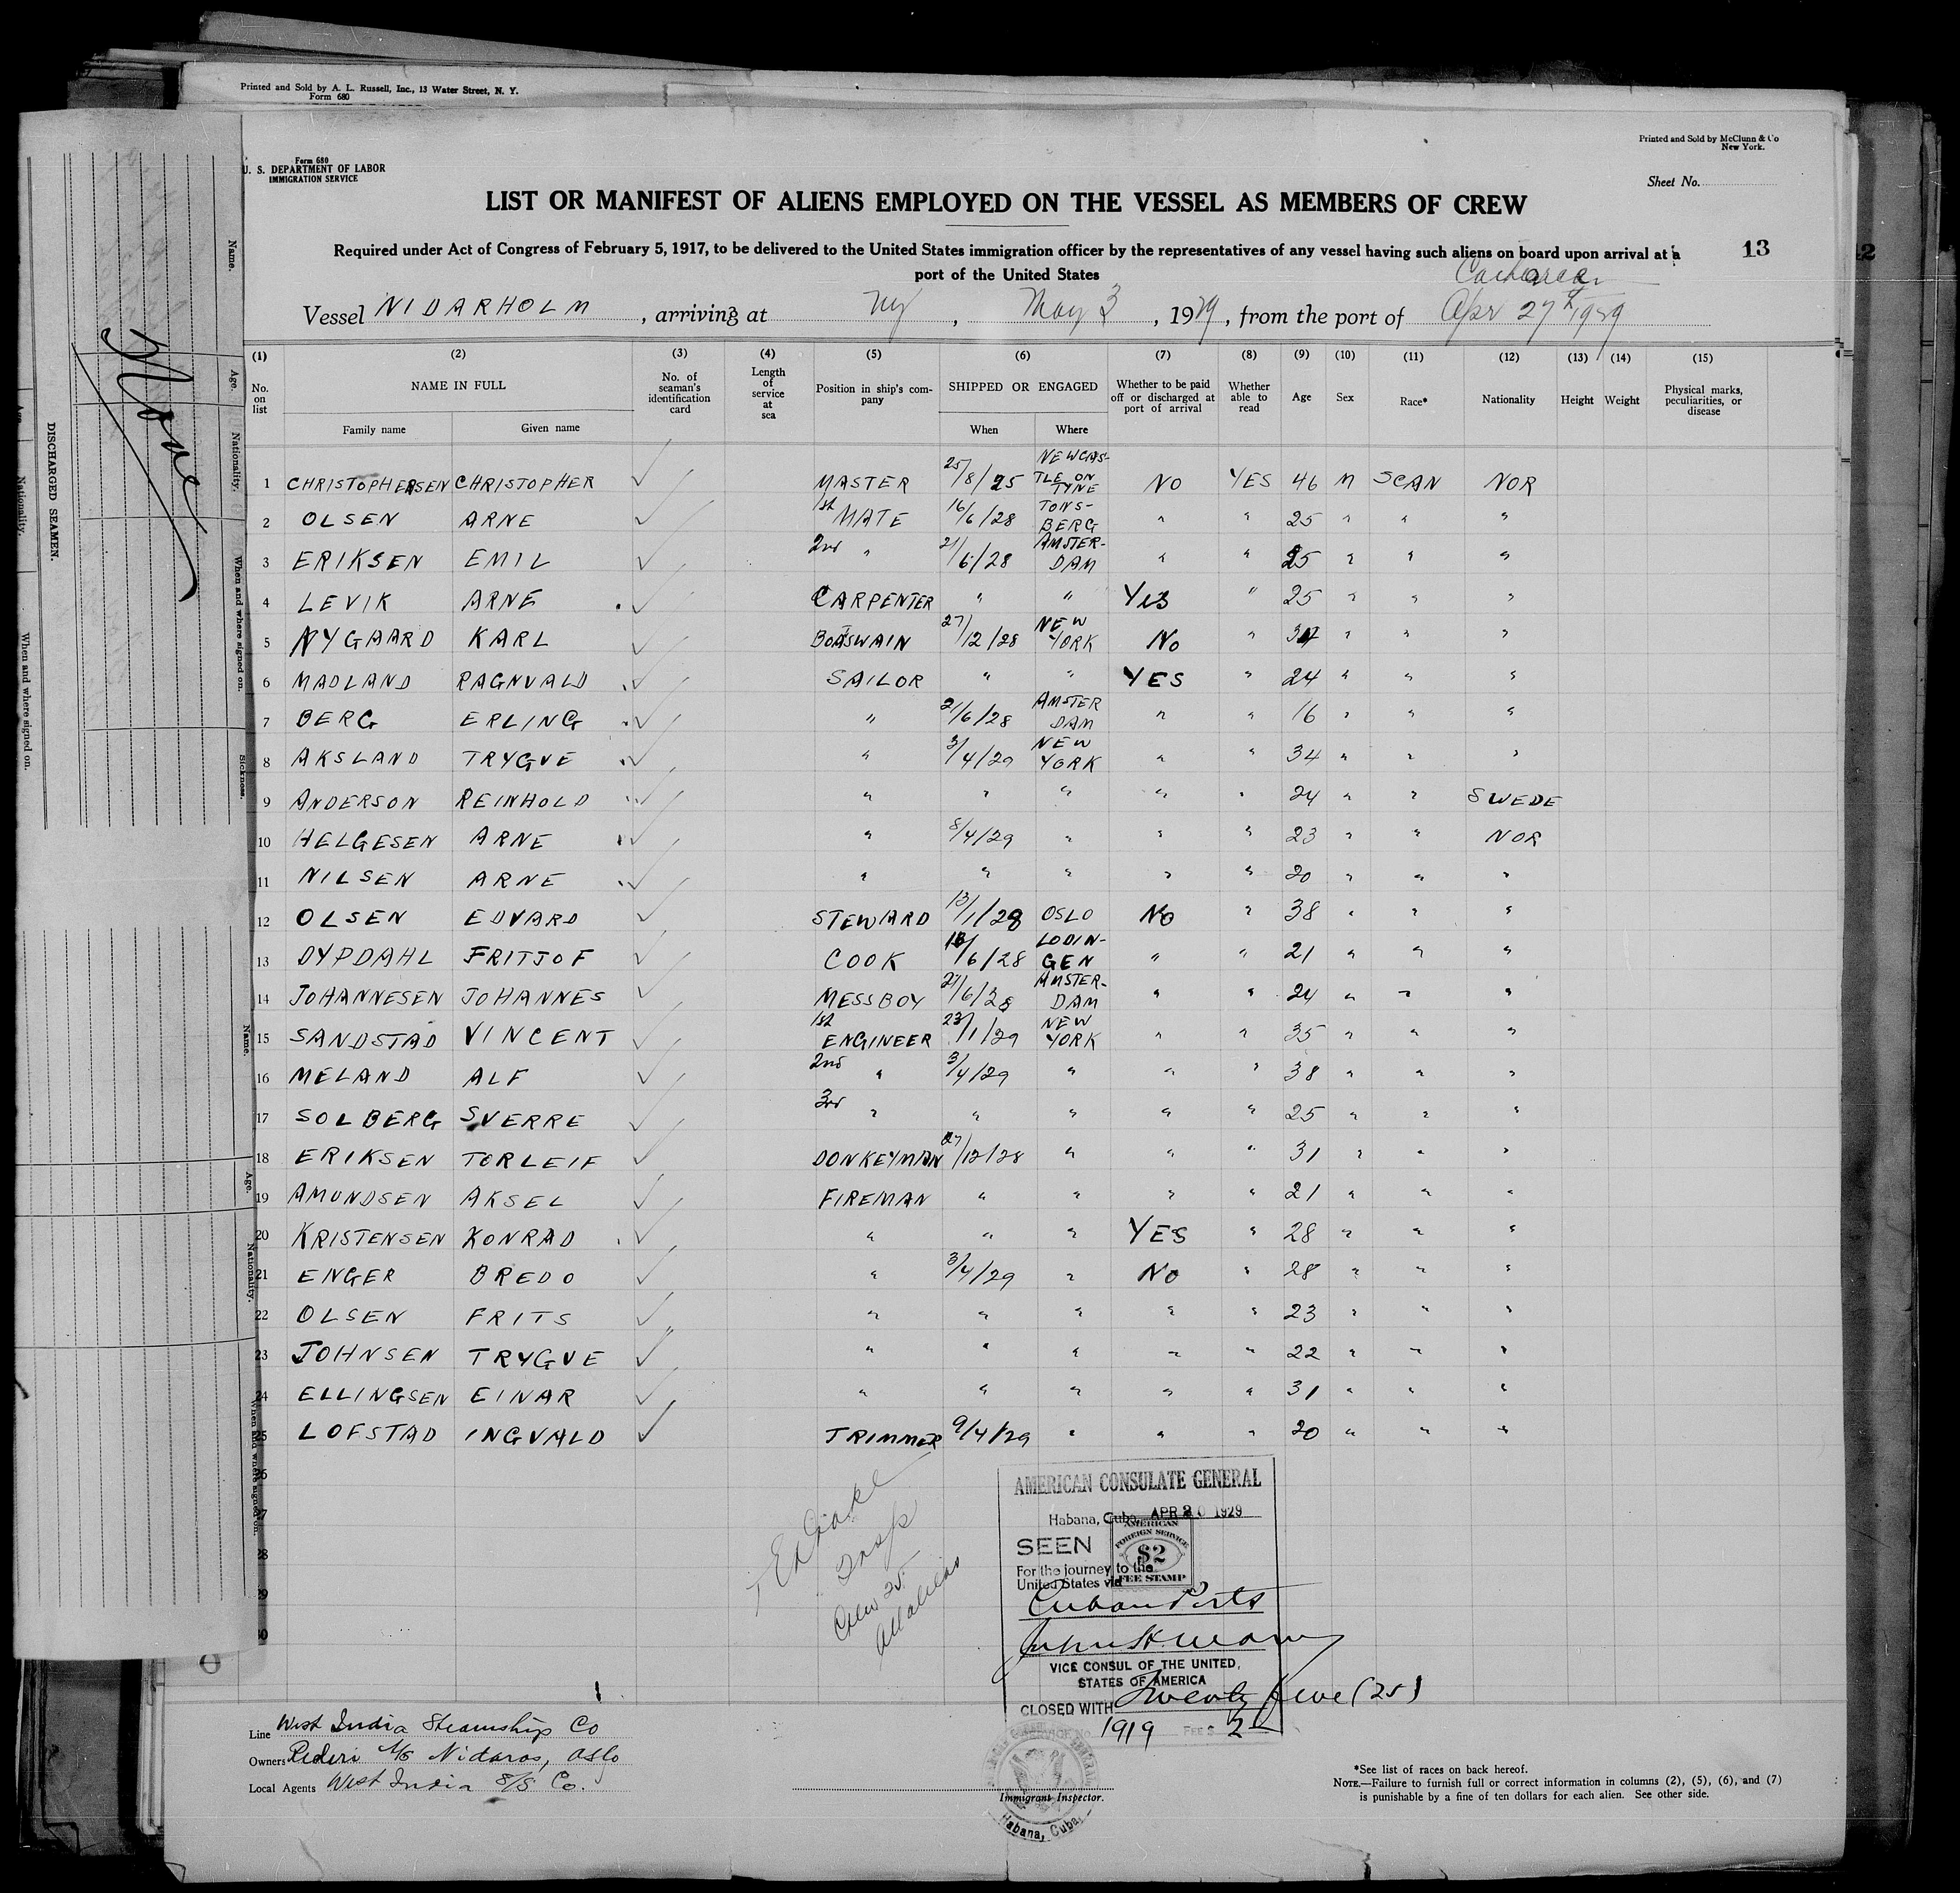 Printed and Sold by A. L. Russell, Inc., 13 Water Street, N. Y.
Form 680
Printed and Sold by McClunn & Co
New York.
Form 680
U. S. DEPARTMENT OF LABOR
IMMIGRATION SERVICE
Sheet No.
LIST OR MANIFEST OF ALIENS EMPLOYED ON THE VESSEL AS MEMBERS OF CREW
Required under Act of Congress of February 5, 1917, to be delivered to the United States immigration officer by the representatives of any vessel having such aliens on board upon arrival at a
port of the United States
13
12
Vessel NIDARHOLM, arriving at NY, May 3, 1929, from the port of Apr 27th 1929
(1) (2) (3) (4) (5) (6) (7) (8) (9) (10) (11) (12) (13) (14) (15)
No. on list
NAME IN FULL
Family name
Given name
No. of seaman's identification card
Length of service at sea
Position in ship's company
SHIPPED OR ENGAGED
When
Where
Whether to be paid off or discharged at port of arrival
Whether able to read
Age
Sex
Race*
Nationality
Height
Weight
Physical marks, peculiarities, or disease
1 CHRISTOPHERSEN CHRISTOPHER MASTER 25/8/25 NEWCASTLE ON TYNE NO YES 46 M SCAN NOR
2 OLSEN ARNE 1st MATE 16/6/28 TONSBERG " " 25 " " "
3 ERIKSEN EMIL 2nd " 21/6/28 AMSTERDAM " " 25 " " "
4 LEVIK ARNE CARPENTER " " Yes " 25 " " "
5 NYGAARD KARL BOATSWAIN 27/12/28 NEW YORK No " " " "
6 MADLAND RAGNVALD SAILOR " " YES " 24 " " "
7 BERG ERLING " 21/6/28 AMSTERDAM " " 16 " " "
8 AKSLAND TRYGVE " 3/4/29 NEW YORK " " 34 " " "
9 ANDERSON REINHOLD " " " " " 24 " " SWEDE
10 HELGESEN ARNE " 8/4/29 " " " 23 " " NOR
11 NILSEN ARNE " " " " " 20 " " "
12 OLSEN EDVARD STEWARD 13/1/28 OSLO No " 38 " " "
13 DYPDAHL FRITJOF COOK 18/6/28 LODINGEN " " 21 " " "
14 JOHANNESEN JOHANNES MESSBOY 21/6/28 AMSTERDAM " " 24 " " "
15 SANDSTAD VINCENT 1st ENGINEER 23/1/29 NEW YORK " " 35 " " "
16 MELAND ALF 2nd " 3/4/29 " " " 38 " " "
17 SOLBERG SVERRE 3rd " " " " " 25 " " "
18 ERIKSEN TORLEIF DONKEYMAN 27/12/28 " " " 31 " " "
19 AMUNDSEN AKSEL FIREMAN " " " " 21 " " "
20 KRISTENSEN KONRAD " " " YES " 28 " " "
21 ENGER BREDO " 3/4/29 " No " 28 " " "
22 OLSEN FRITS " " " " " 23 " " "
23 JOHNSEN TRYGVE " " " " " 22 " " "
24 ELLINGSEN EINAR " " " " " 31 " " "
25 LOFSTAD INGVALD TRIMMER 9/4/29 " " " 20 " " "
26
27
28
29
30
Insp
Crew 25
All aliens
AMERICAN CONSULATE GENERAL
Habana, Cuba, APR 20 1929
SEEN
For the journey to the
United States via
AMERICAN
FOREIGN SERVICE
$2
FEE STAMP
Cuban Ports
VICE CONSUL OF THE UNITED
STATES OF AMERICA
CLOSED WITH Twenty five (25)
SERVICE No. 1919 FEE $ 2
Habana, Cuba.
Line West India Steamship Co
Owners Rederi A/S Nidaros, Oslo
Local Agents West India S/S Co.
Immigrant Inspector.
*See list of races on back hereof.
NOTE.—Failure to furnish full or correct information in columns (2), (5), (6), and (7)
is punishable by a fine of ten dollars for each alien. See other side.
DISCHARGED SEAMEN.
Name.
Age.
Nationality.
When and where signed on.
Sickness.
None
Name.
Age.
Nationality.
When and where signed on.
Age
Nationality.
When and where signed on.